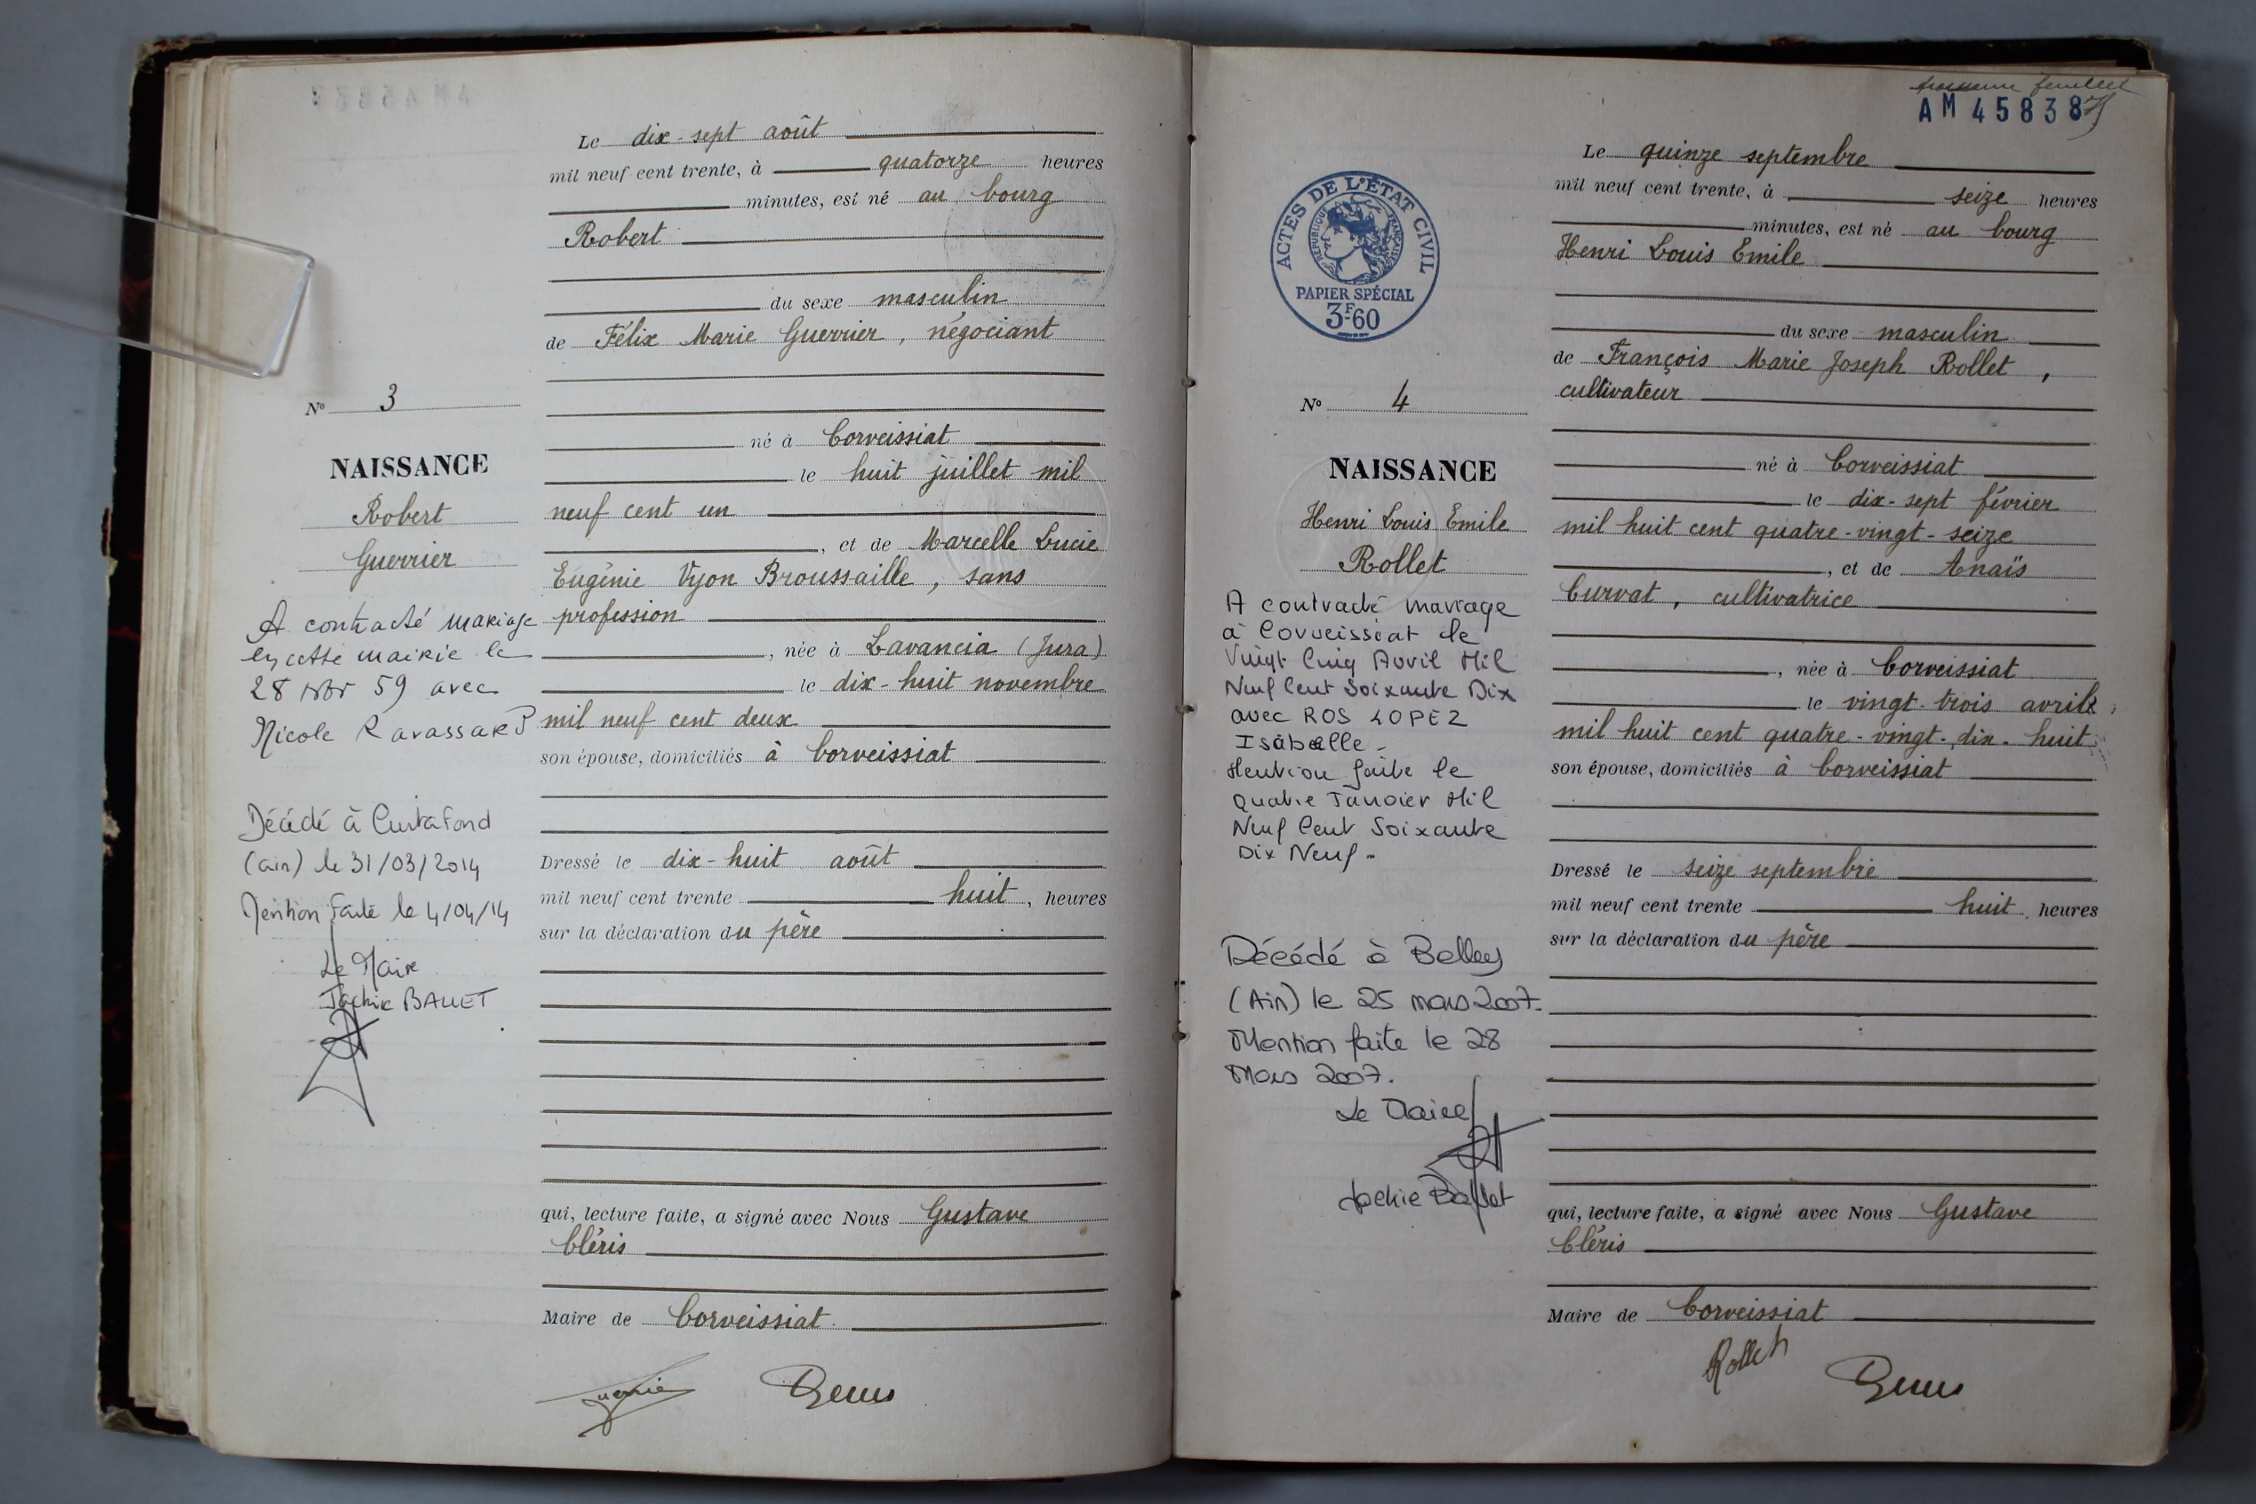 Le dix-sept août
mil neuf cent trente, à quatorze heures
minutes, est né au bourg
Robert
du sexe masculin
de Félix Marie Guerrier, négociant
né à Corveissiat
le huit juillet mil
neuf cent un
, et de Marcelle Lucie
Eugénie Vyon Broussaille, sans
profession
, née à Lavancia (Jura)
le dix-huit novembre
mil neuf cent deux
son épouse, domiciliés à Corveissiat
Dressé le dix-huit août
mil neuf cent trente huit, heures
sur la déclaration du père
qui, lecture faite, a signé avec Nous Gustave
Cléris
Maire de Corveissiat
No 3
NAISSANCE
Robert
Guerrier
A contracté mariage
en cette mairie le
28 59 avec
Nicole Ravassard
Décédé à Curtafond
(ain) le 31/03/2014
Mention faite le 4/04/14
Le Maire
Jackie BALLET
feuillet
AM 45838
Le quinze septembre
mil neuf cent trente, à seize heures
minutes, est né au bourg
Henri Louis Emile
du sexe masculin
de François Marie Joseph Rollet,
cultivateur
né à Corveissiat
le dix-sept février
mil huit cent quatre-vingt-seize
, et de Anaïs
Curvat, cultivatrice
, née à Corveissiat
le vingt-trois avril
mil huit cent quatre-vingt-dix-huit
son épouse, domiciliés à Corveissiat
Dressé le seize septembre
mil neuf cent trente huit heures
sur la déclaration du père
qui, lecture faite, a signé avec Nous Gustave
Cléris
Maire de Corveissiat
Rollet
ACTES DE L'ÉTAT CIVIL
RÉPUBLIQUE FRANÇAISE
PAPIER SPÉCIAL
3F60
No 4
NAISSANCE
Henri Louis Emile
Rollet
A contracté mariage
à Corveissiat le
Vingt Cinq Avril Mil
Neuf Cent Soixante Dix
avec ROS LOPEZ
Isabelle -
Mention faite le
Quatre Janvier Mil
Neuf Cent Soixante
Dix Neuf -
Décédé à Belley
(Ain) le 25 mars 2007.
Mention faite le 28
Mars 2007.
Le Maire
Jackie Ballet